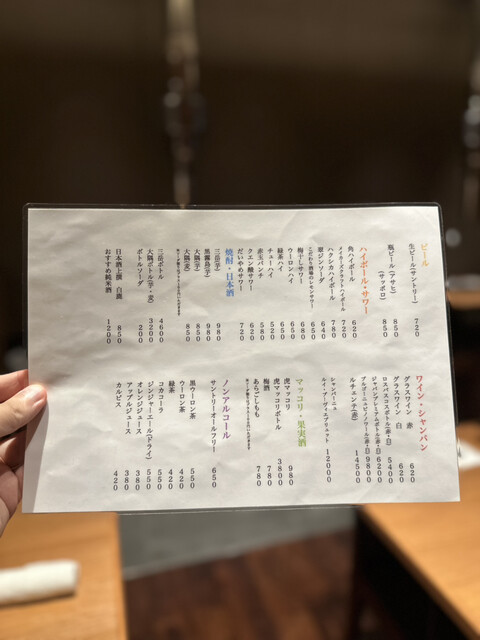 ビール
生ビール(サントリー) 720
瓶ビール(アサヒ) 850
(サッポロ) 850
ハイボール・サワー
角ハイボール 620
メイカーズクラフトハイボール 720
ハクシカハイボール 780
翠ジンソーダ 640
こだわり酒場のレモンサワー 650
梅干しサワー 680
ウーロンハイ 650
緑茶ハイ 650
チューハイ 520
赤玉パンチ 580
クエン酸サワー 620
だいやめサワー 720
焼酎・日本酒
三岳(芋) 980
黒霧島(芋) 980
大隅(芋) 850
大隅(麦) 850
三岳ボトル 4600
大隅ボトル(芋・麦) 3200
ボトルソーダ 200
日本酒上撰 白鹿 850
おすすめ純米酒 1200
ワイン・シャンパン
グラスワイン 赤 620
グラスワイン 白 620
ロスパスコスボトル(赤・白) 5400
ジャパンプレミアムボトル(赤・白) 6200
ブルゴーニュピノノワール(赤・白) 9800
ルチェンテ(赤) 14500
シャンパーニュ
ルイ・アザ・ヴィエフリュエット 12000
マッコリ・果実酒
虎マッコリ 980
虎マッコリボトル 3800
梅酒 780
あらごしもも 780
ノンアルコール
サントリーオールフリー 650
黒ウーロン茶 550
ウーロン茶 420
緑茶 420
コカコーラ 550
ジンジャーエール(ドライ) 550
オレンジジュース 380
アップルジュース 380
カルピス 420